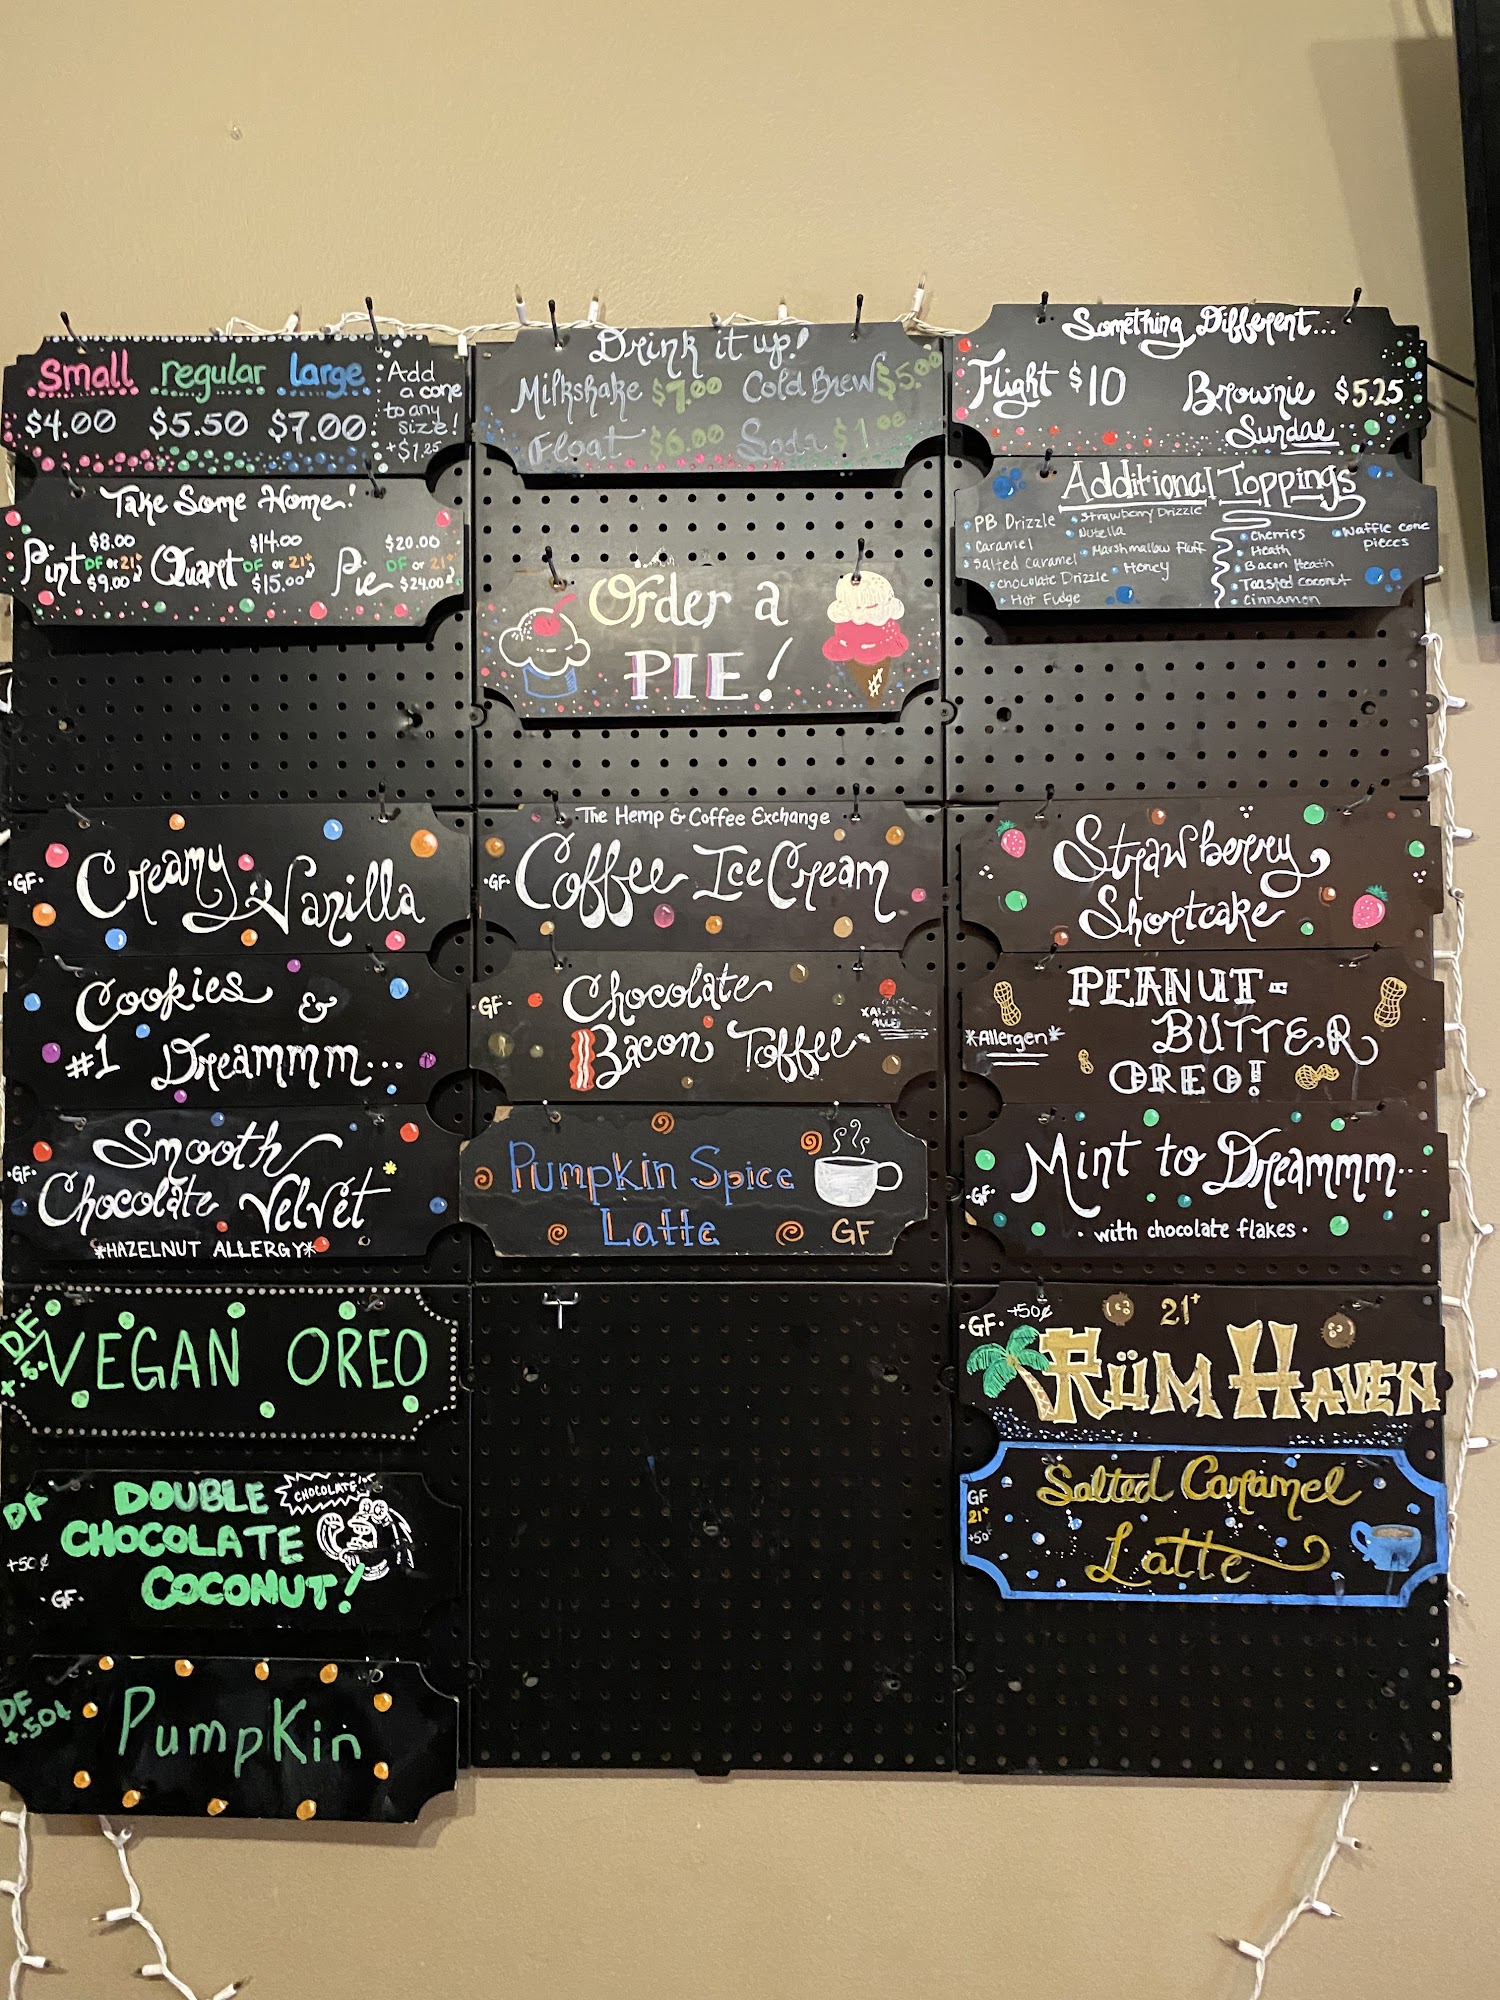 Small regular large
$4.00 $5.50 $7.00
Add
a cone
to any
size!
+$1.25
Take Some Home!
Pint $8.00 DF or 21+ $9.00
Quart $14.00 DF or 21+ $15.00
Pie $20.00 DF or 21+ $24.00
Drink it up!
Milkshake $7.00 Cold Brew $5.00
Float $6.00 Soda $1.00
Order a
PIE!
Something Different...
Flight $10
Brownie $5.25
Sundae
Additional Toppings
PB Drizzle
Caramel
Salted Caramel
Chocolate Drizzle
Hot Fudge
Strawberry Drizzle
Nutella
Marshmallow Fluff
Honey
Cherries
Heath
Bacon Heath
Toasted Coconut
Cinnamon
Waffle cone
pieces
·GF· Creamy Vanilla
Cookies &
#1 Dreammm...
Smooth
·GF· Chocolate Velvet
*HAZELNUT ALLERGY*
The Hemp & Coffee Exchange
·GF· Coffee Ice Cream
·GF· Chocolate
Bacon Toffee
Pumpkin Spice
Latte GF
Strawberry
Shortcake
PEANUT-
*Allergen* BUTTER
OREO!
Mint to Dreammm...
·GF·
· with chocolate flakes ·
DF
VEGAN OREO
DF DOUBLE CHOCOLATE
CHOCOLATE
+50¢ COCONUT!
·GF·
DF
+.50¢ Pumpkin
·GF· +50¢ 21+
RÜM HAVEN
Salted Caramel
GF
21+
+50¢
Latte